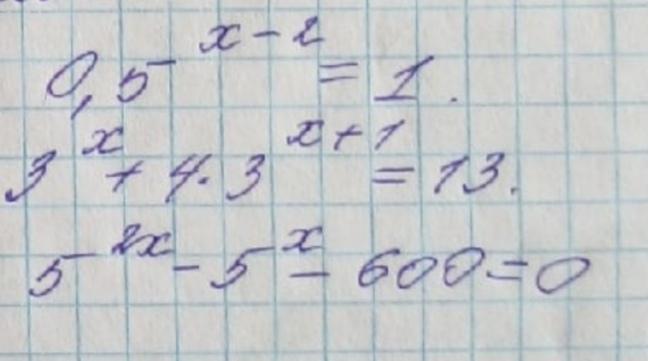 0,5^{x-2} = 1.
3^{x} + 4·3^{x+1} = 13.
5^{2x} - 5^{x} - 600 = 0